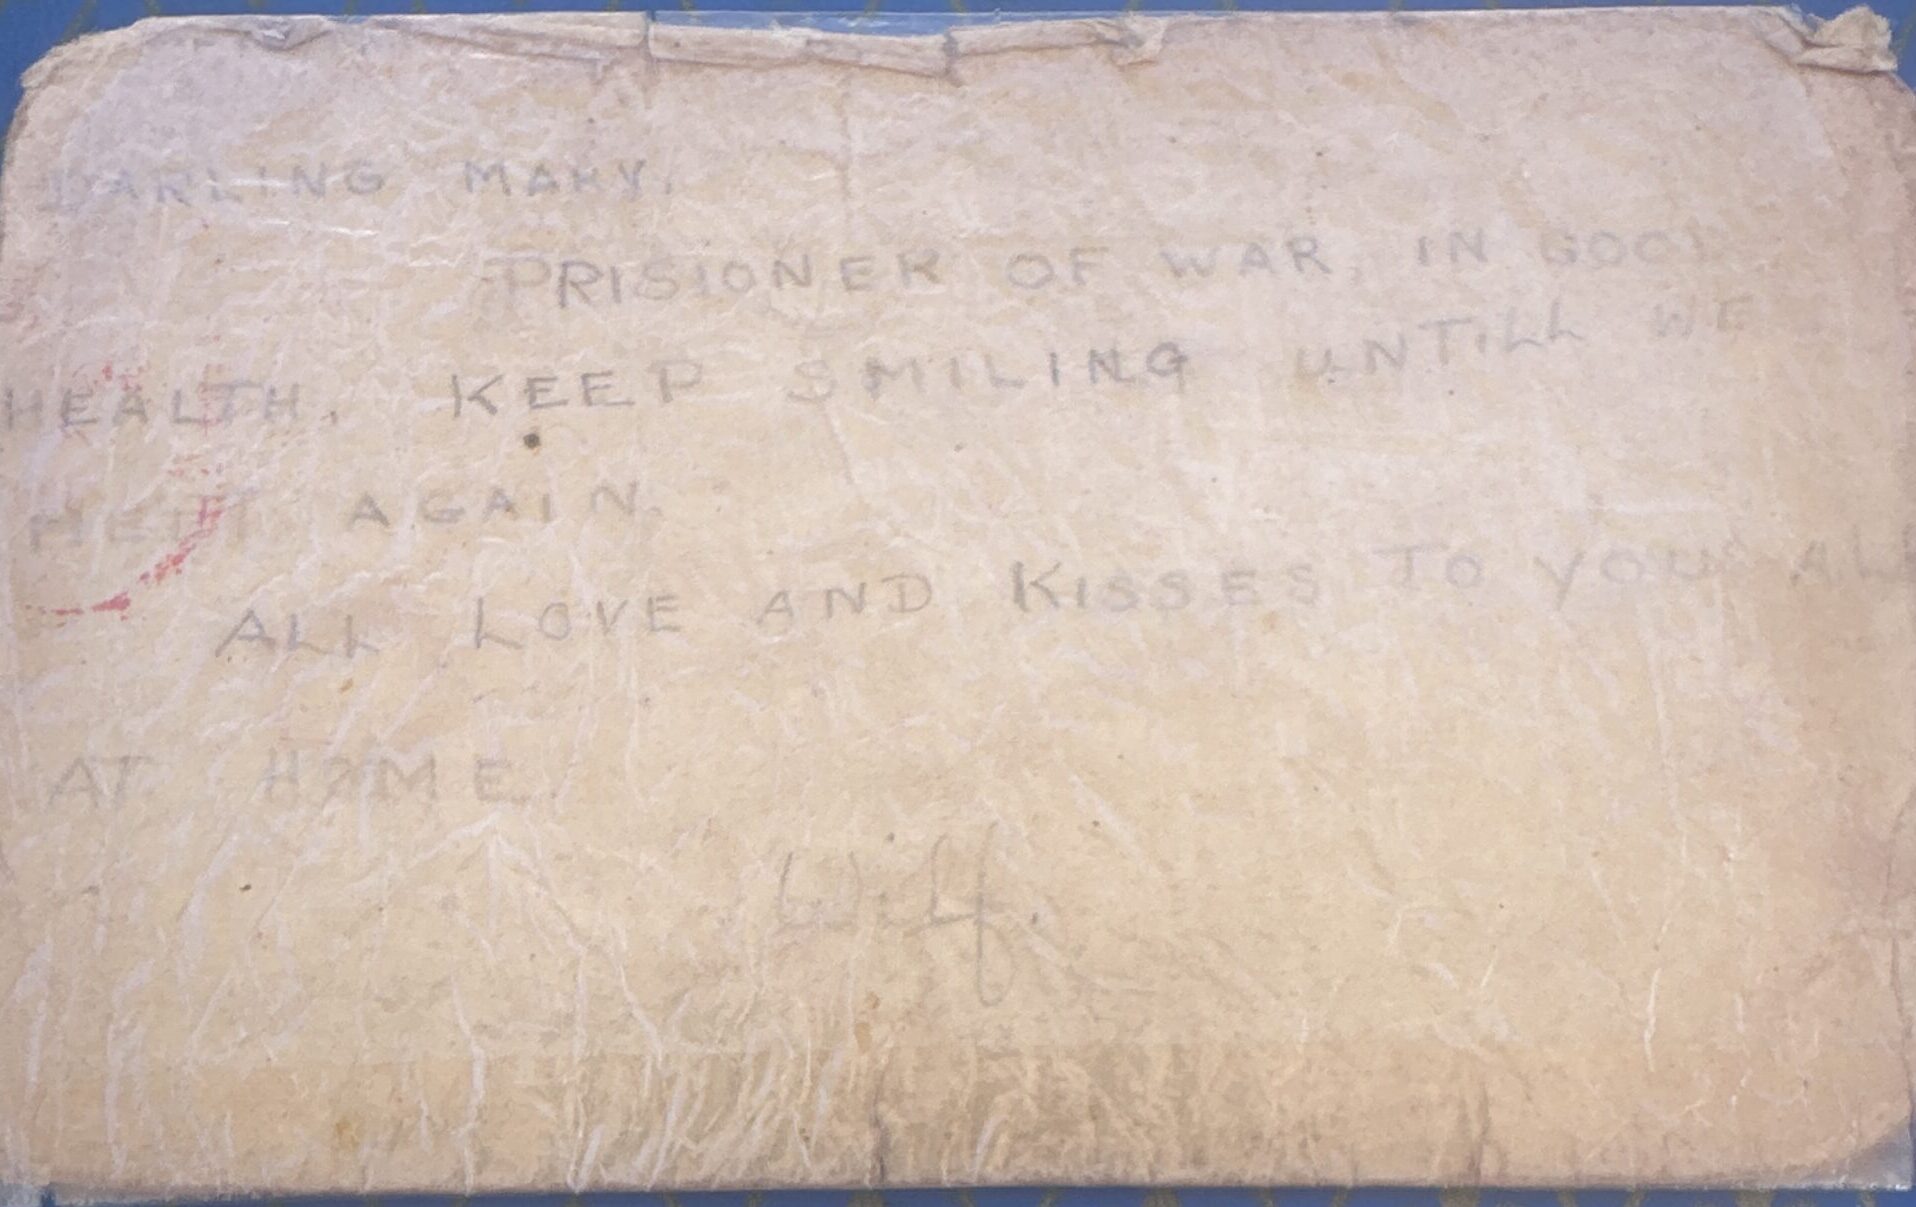 DARLING MARY.
PRISIONER OF WAR, IN GOOD
HEALTH. KEEP SMILING UNTILL WE
MEET AGAIN.
ALL LOVE AND KISSES TO YOU ALL
AT HOME.
Wilf.